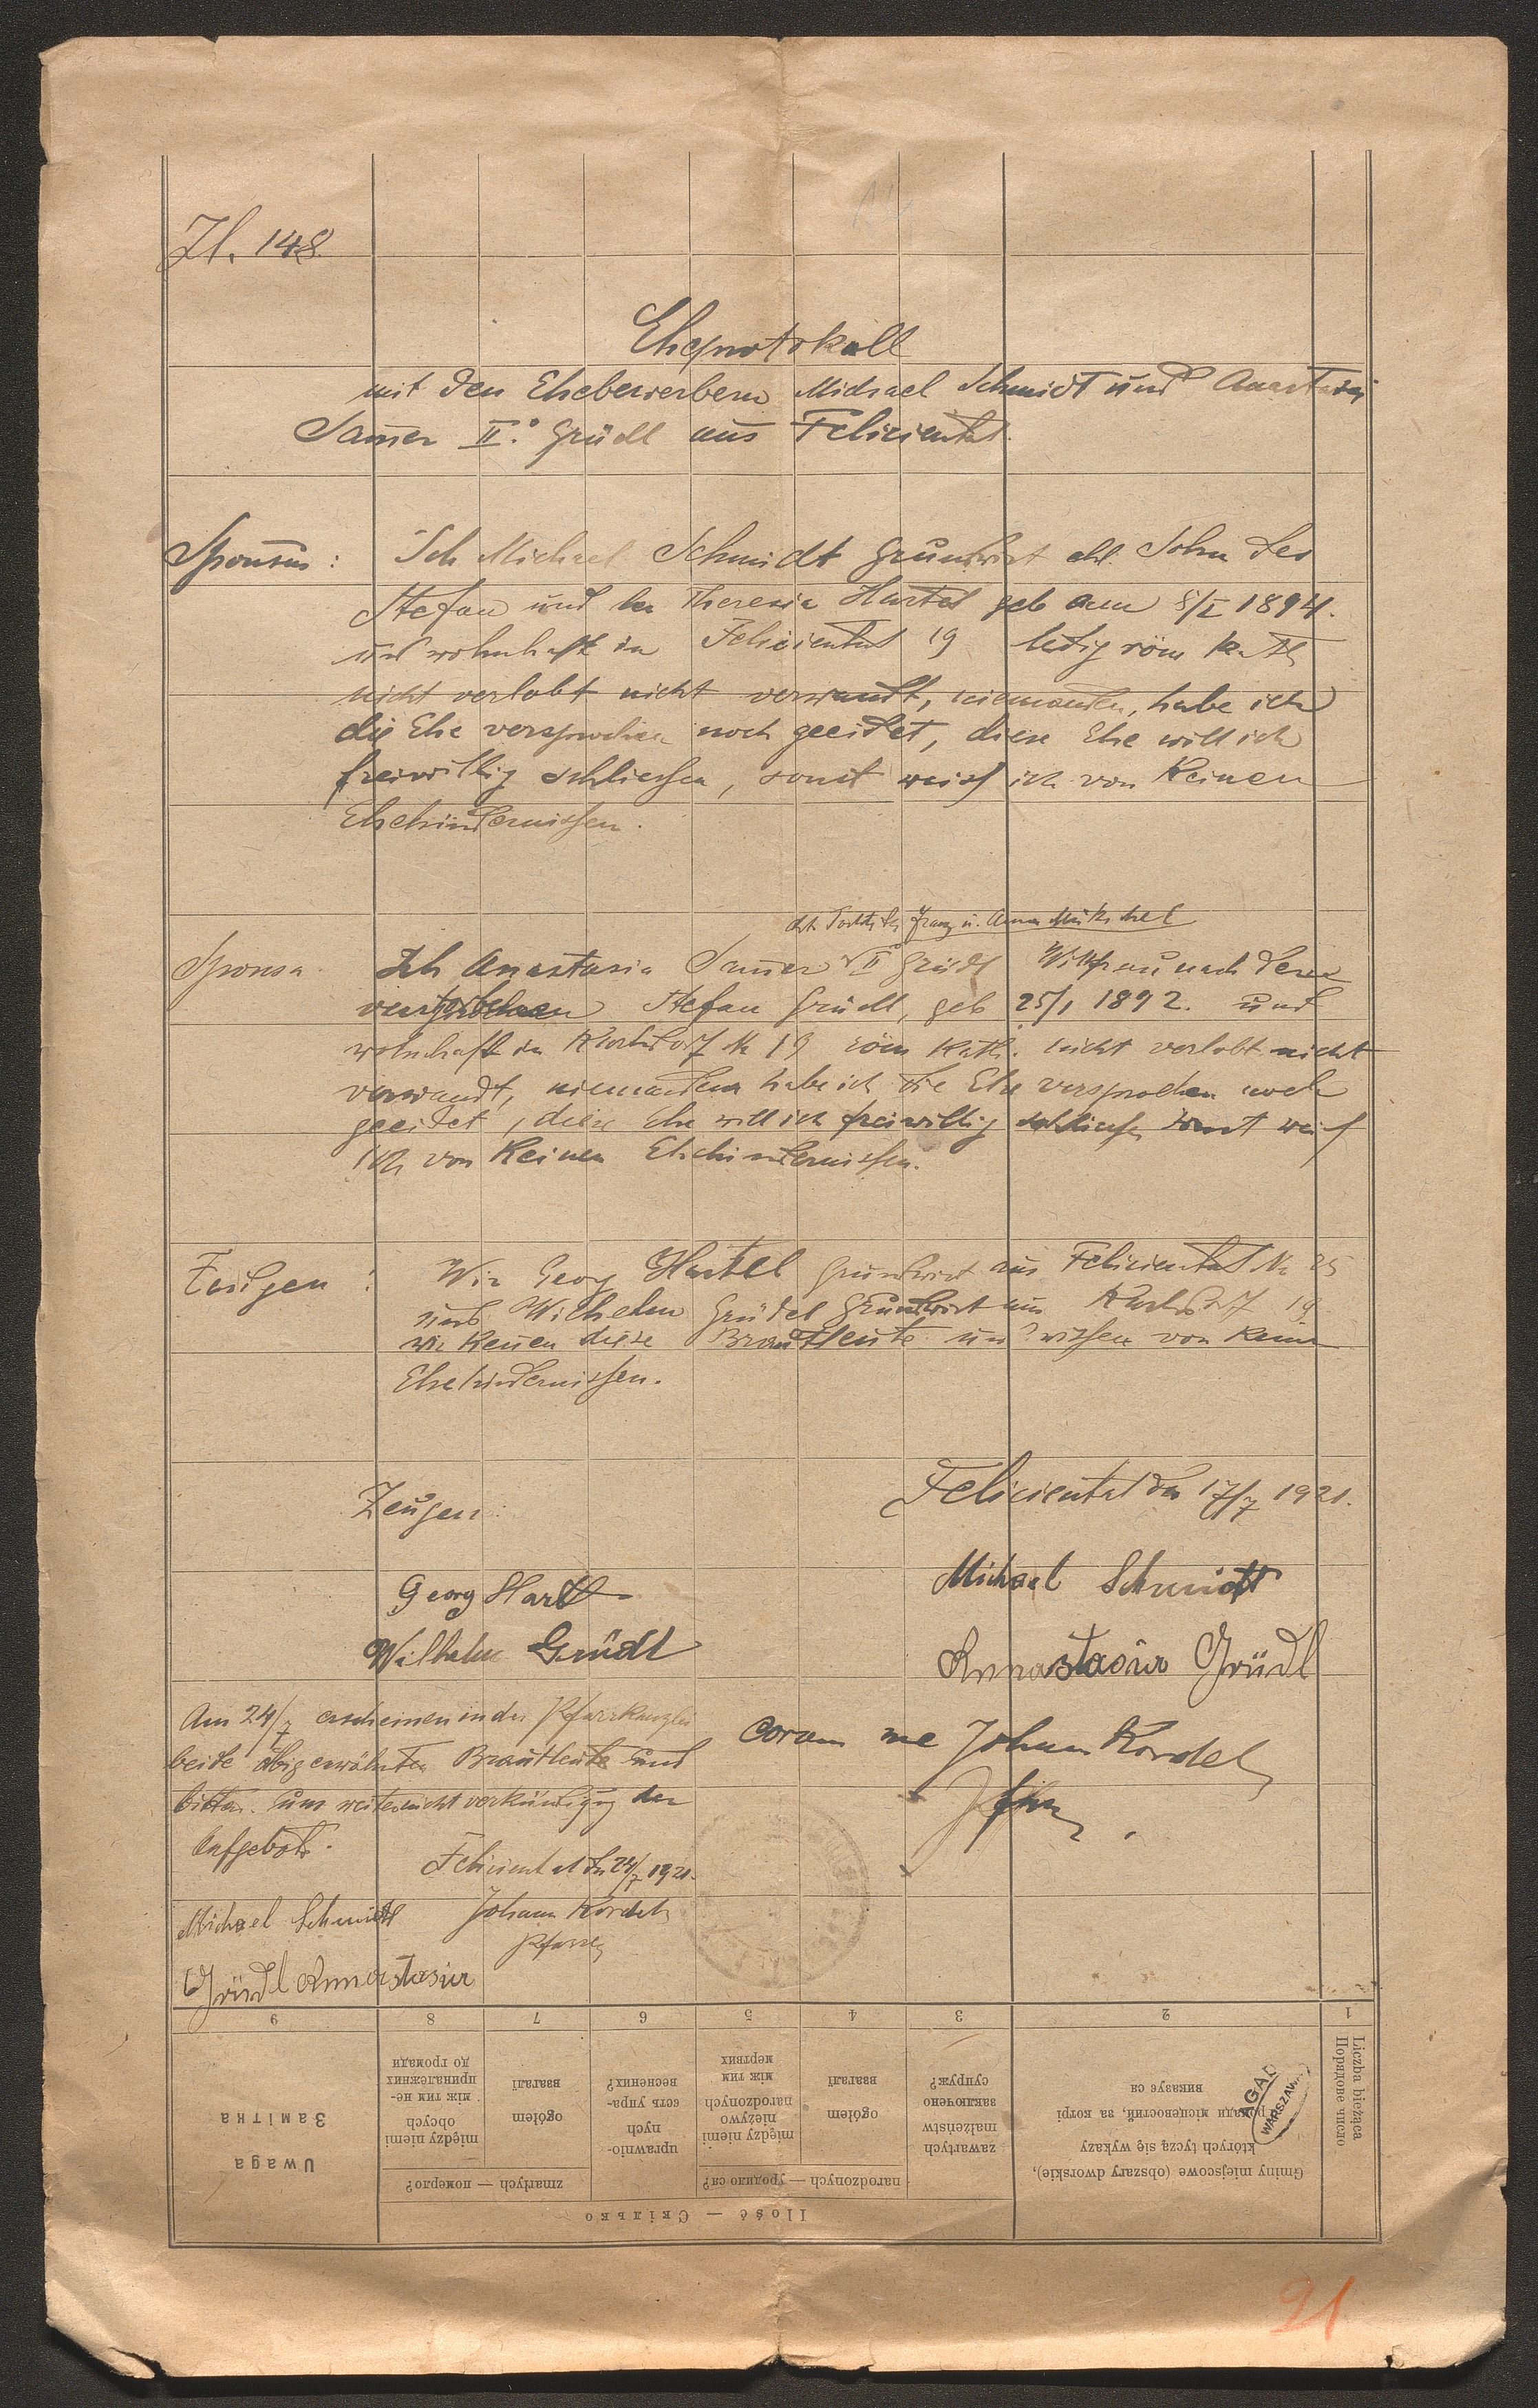 Zl. 148
Eheprotokoll
mit den Ehebewerbern Michael Schmidt und Anastasia
Samer II.° Gründl aus Felicienthal.
Sponsus: Ich Michael Schmidt Grundwirt ehl. Sohn des
Stefan und der Theresia Hartel geb am 8/I 1894.
und wohnhaft in Felicienthal 19 ledig röm Kath
nicht verlobt nicht verwandt, niemanden, habe ich
die Ehe versprochen noch geeidet, diese Ehe will ich
freiwillig schliessen, sonst weiss ich von Keinen
Ehehindernissen.
Franz u. Anna
Sponsa. Ich Anastasia Samer II° Grüdl Witfrau nach dem
verstorbenen Stefan Grüdl, geb 25/1 1892. und
wohnhaft in No 19 röm Kath. nicht verlobt nicht
verwandt, niemandem habe ich die Ehe versprochen noch
geeidet, diese Ehe will ich freiwillig schliessen sonst weiss
ich von Keinen Ehehindernissen.
Zeugen: Wir Georg Hartel Grundwirt aus Felicienthal No 25
und Wilhelm Grüdel Grundwirt aus 19
wir kennen diese Brautleute und wissen von Keinen
Ehehindernissen.
Felicienthal den 17/7 1921.
Zeugen:
Michael Schmidt
Georg Hartl
Wilhelm Grüdl
Annastasiia Grüdl
coram me Johann Kordel
Pfarrer
Am 24/7 erscheinen in der Pfarrkanzlei
beide obig erwähnten Brautleute und
bitten um verkündigung der
Aufgebote.
Felicienthal den 24/7 1921.
Michael Schmidt Johann Kordel
Pfarrer
Grüdl Annastasiia
9 8 7 6 5 4 3 2 1
Liczba bieżąca
Порядове число
Gminy miejscowe (obszary dworskie),
których tyczą się wykazy
Громади місцевостий, за котрі
виказує ся
AGAD
WARSZAWA
Ilość — Скілько
zawartych
małżeństw
заключено
супруж?
narodzonych — уродило ся?
ogółem
взагалі
między niemi
nieżywo
narodzonych
між тим
мертвих
uprawnio-
nych
єсть упра-
внених?
zmarłych — померло?
ogółem
взагалі
między niemi
obcych
між тим не-
приналежних
до громади
Uwaga
Замітка
91